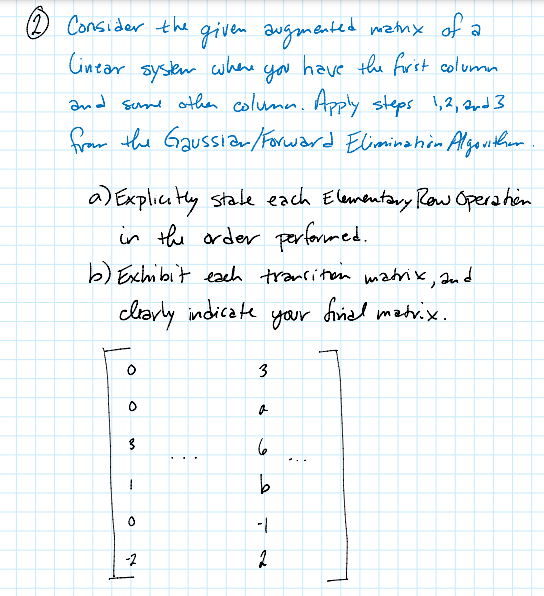 ② Consider the given augmented matrix of a
linear system where you have the first column
and some other column. Apply steps 1,2, and 3
from the Gaussian/Forward Elimination Algorithm.
a) Explicitly state each Elementary Row Operation
in the order performed.
b) Exhibit each transition matrix, and
clearly indicate your final matrix.
0 3
0 a
3 ... 6 ...
1 b
0 -1
-2 2